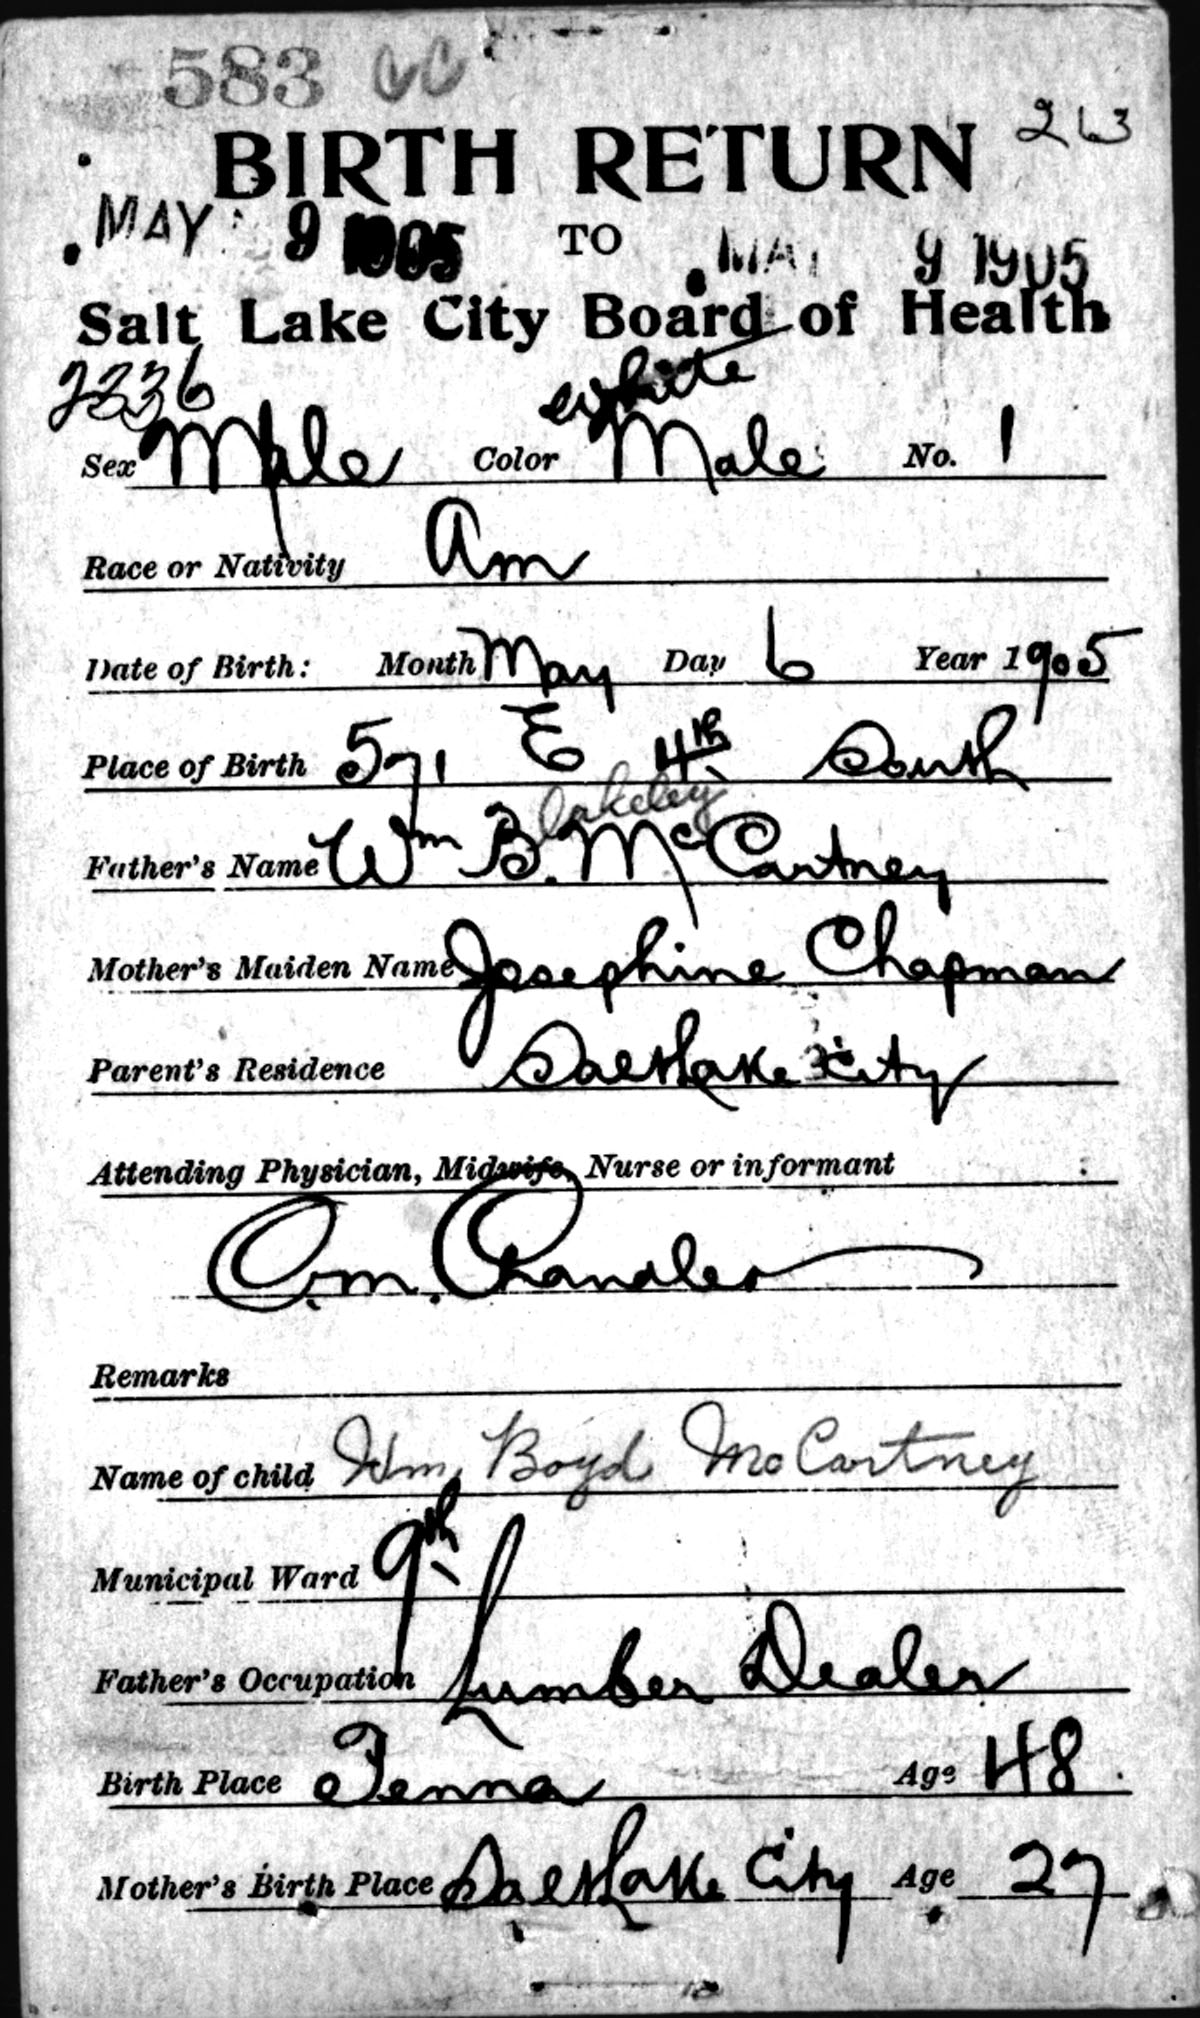 583 CC
263
BIRTH RETURN
MAY 9 1905 TO MAY 9 1905
Salt Lake City Board of Health
2336 white
Sex Male Color Male No. 1
Race or Nativity Am
Date of Birth: Month May Day 6 Year 1905
Place of Birth 571 E 4th South
lakeley
Father's Name Wm B. McCartney
Mother's Maiden Name Josephine Chapman
Parent's Residence Salt Lake City
Attending Physician, Midwife, Nurse or informant
O.M. Chandler
Remarks
Name of child Wm. Boyd McCartney
Municipal Ward 9th
Father's Occupation Lumber Dealer
Birth Place Penna Age 48
Mother's Birth Place Salt Lake City Age 27